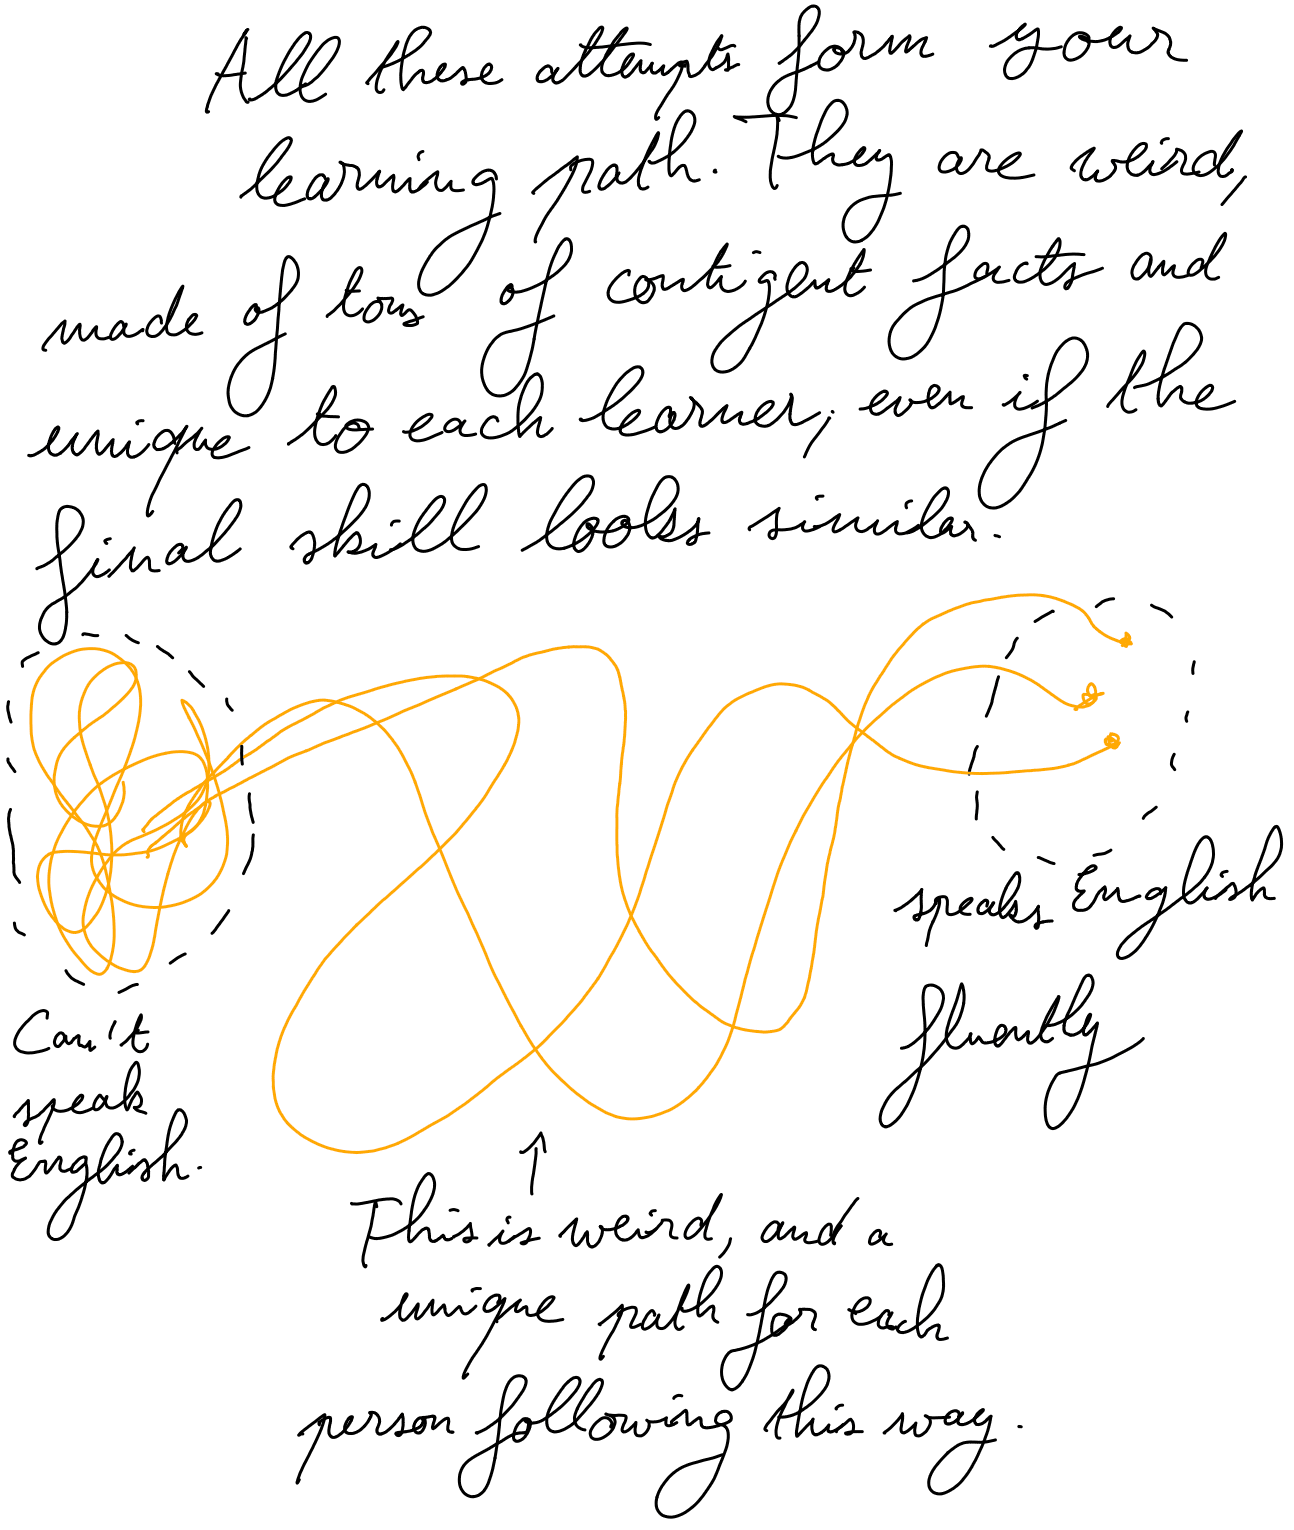 All these attempts form your
learning path. They are weird,
made of tons of contigent facts and
unique to each learner, even if the
final skill looks similar.
speaks English
fluently
Can't
speak
English.
↑
This is weird, and a
unique path for each
person following this way.